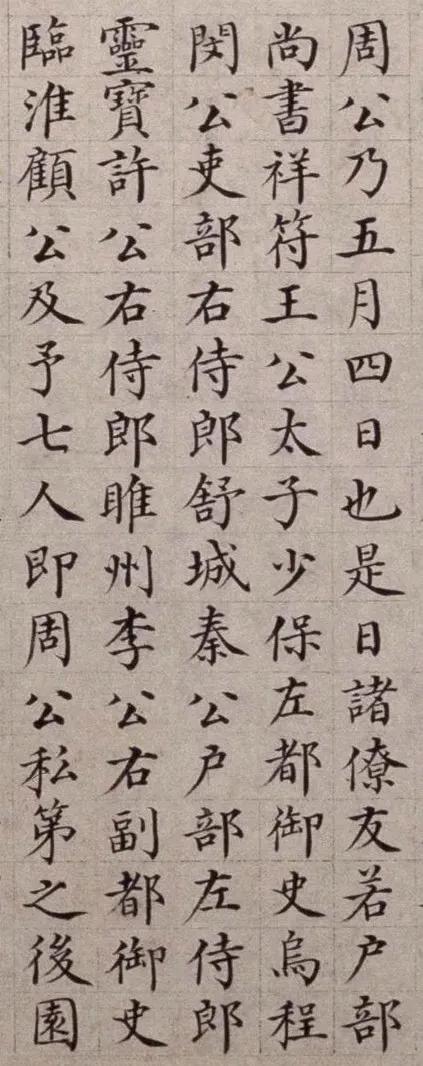 周公乃五月四日也是日諸僚友若户部
尚書祥符王公太子少保左都御史烏程
閔公吏部右侍郎舒城秦公户部左侍郎
靈寶許公右侍郎睢州李公右副都御史
臨淮顧公及予七人即周公私第之後園